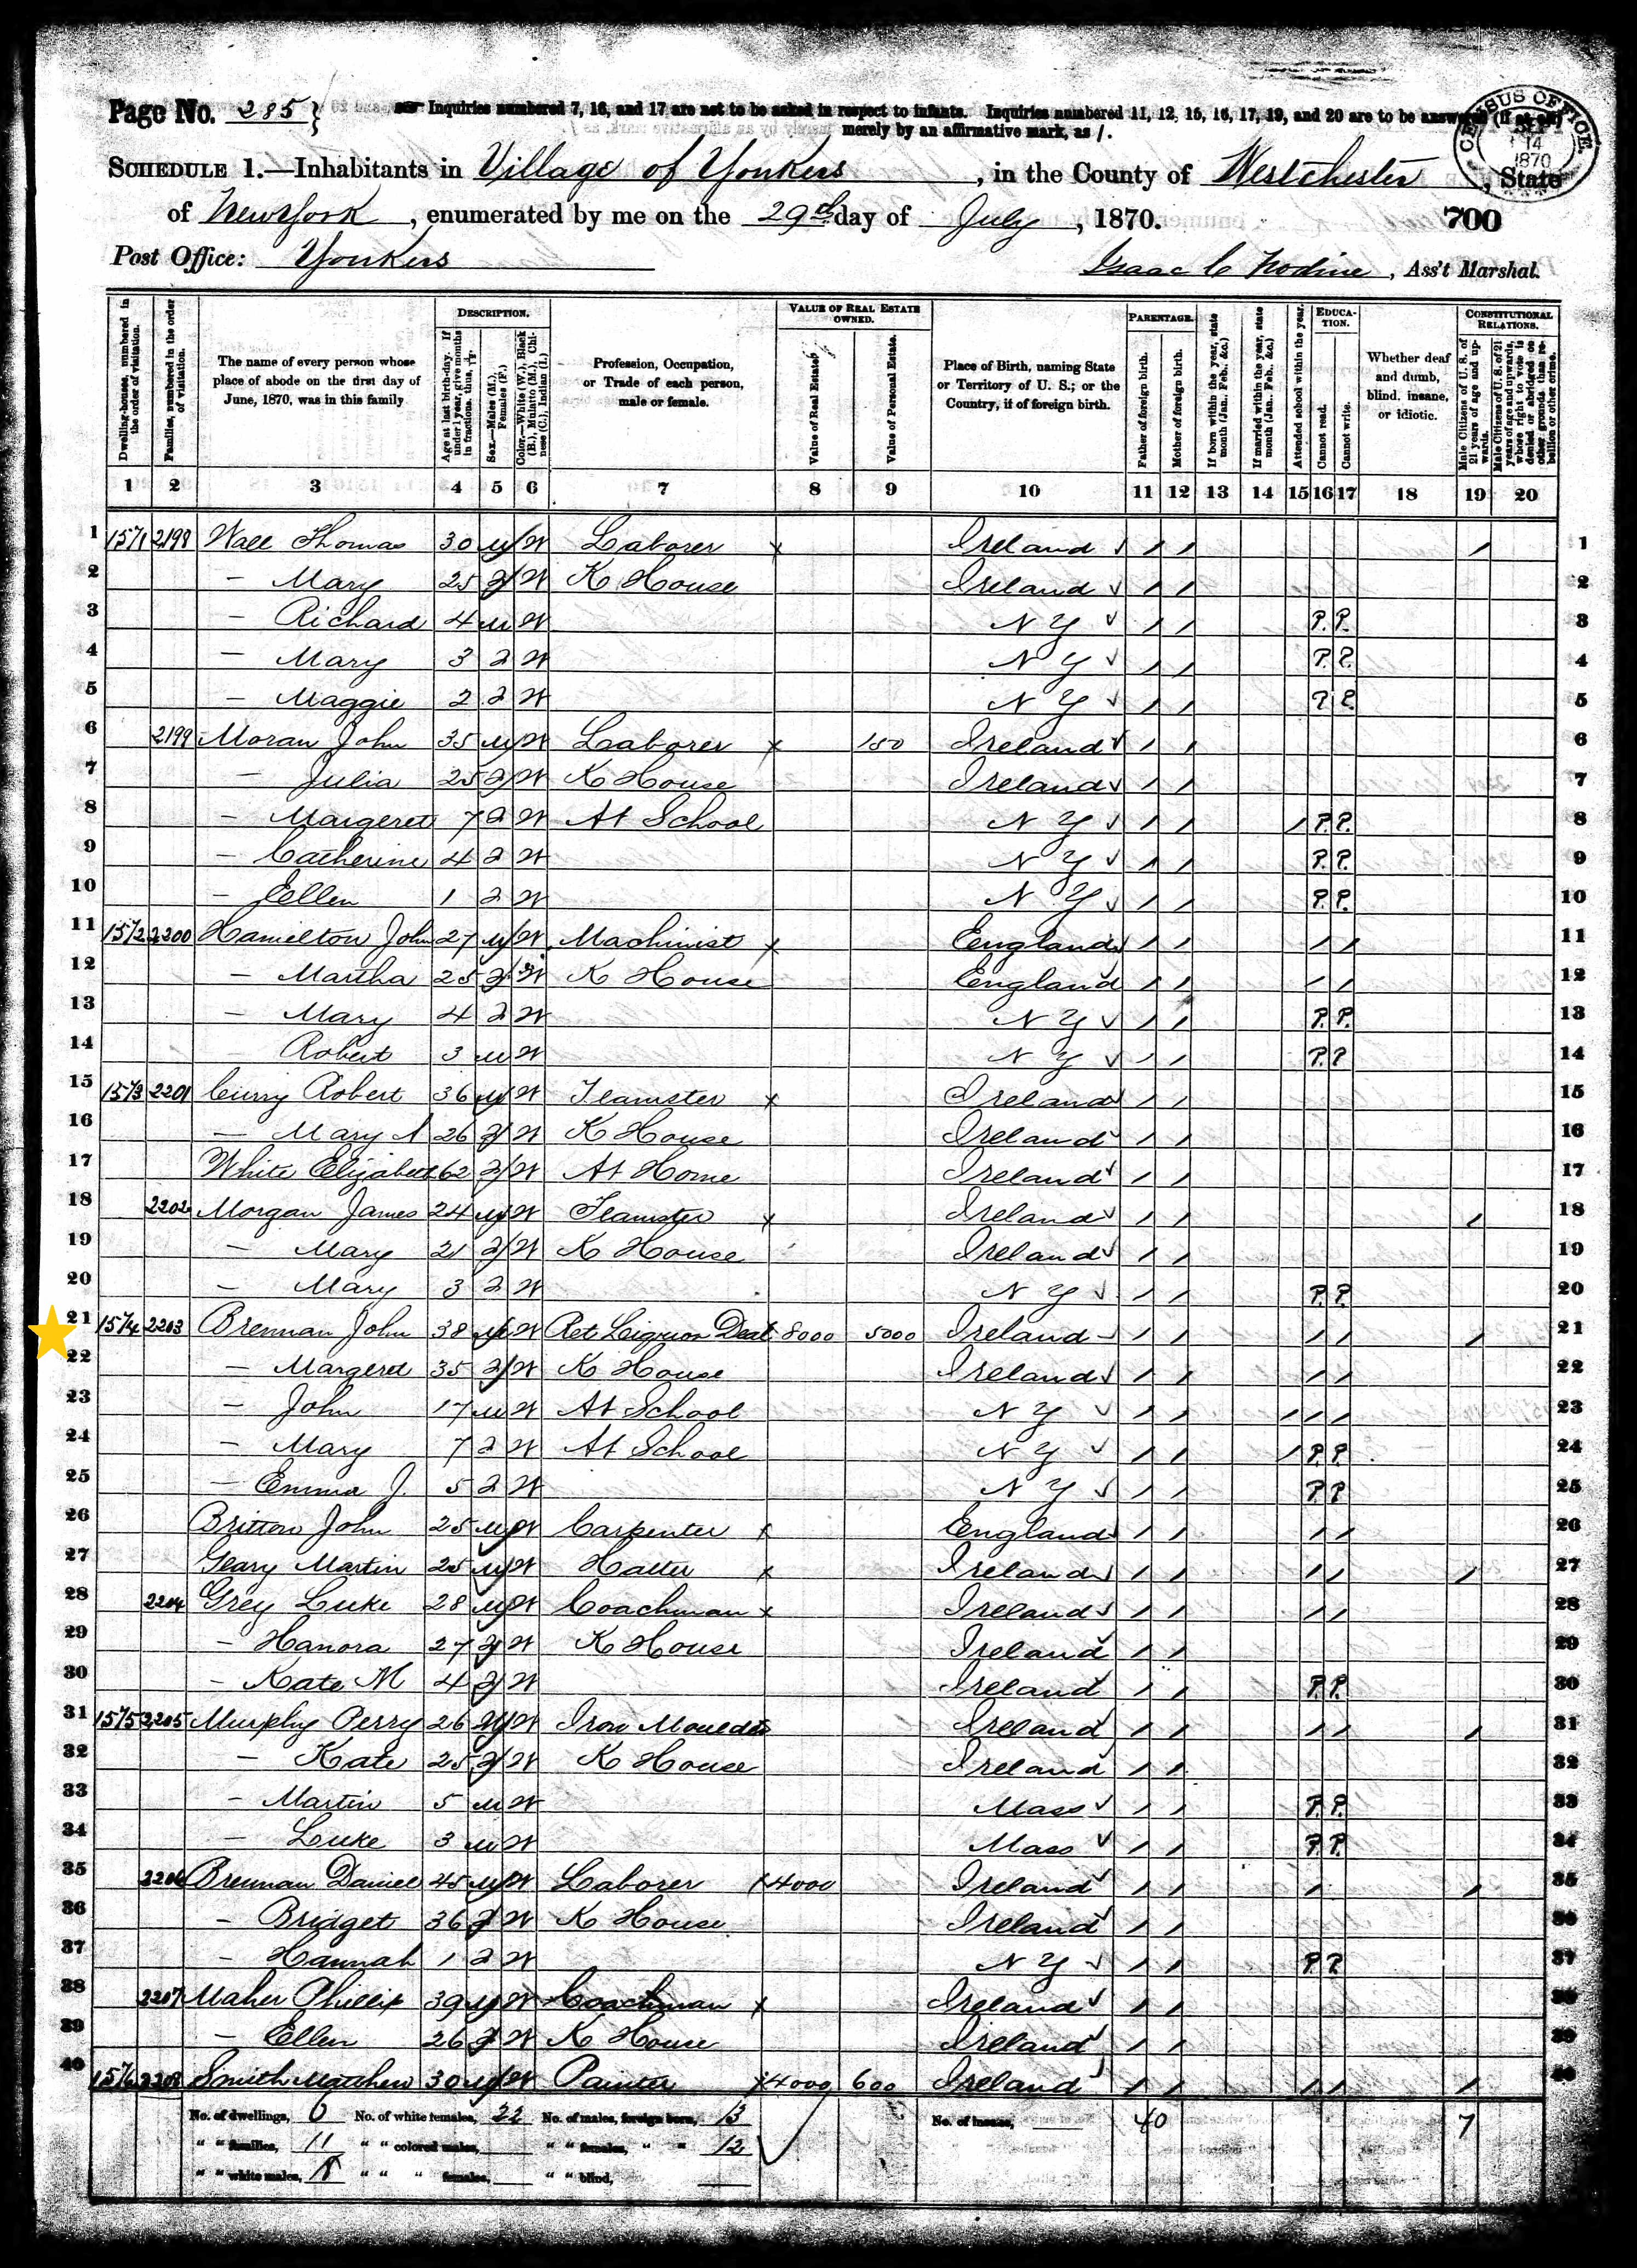 Page No. 285 } Inquiries numbered 7, 16, and 17 are not to be asked in respect to infants. Inquiries numbered 11, 12, 15, 16, 17, 19, and 20 are to be answered (if at all)
merely by an affirmative mark, as /.
CENSUS OFFICE. 14 1870
SCHEDULE 1.—Inhabitants in Village of Yonkers, in the County of Westchester, State
of New York, enumerated by me on the 29th day of July, 1870. 700
Post Office: Yonkers Isaac C Nodine, Ass't Marshal.
Dwelling-houses, numbered in the order of visitation.
Families, numbered in the order of visitation.
The name of every person whose place of abode on the first day of June, 1870, was in this family
DESCRIPTION.
Age at last birth-day. If under 1 year, give months in fractions, thus,
Sex.—Males (M.), Females (F.)
Color.—White (W.), Black (B.), Mulatto (M.), Chinese (C.), Indian (I.)
Profession, Occupation, or Trade of each person, male or female.
VALUE OF REAL ESTATE OWNED.
Value of Real Estate.
Value of Personal Estate.
Place of Birth, naming State or Territory of U. S.; or the Country, if of foreign birth.
PARENTAGE.
Father of foreign birth.
Mother of foreign birth.
If born within the year, state month (Jan. Feb., &c.)
If married within the year, state month (Jan. Feb., &c.)
Attended school within the year.
EDUCATION.
Cannot read.
Cannot write.
Whether deaf and dumb, blind, insane, or idiotic.
CONSTITUTIONAL RELATIONS.
Male Citizens of U. S. of 21 years of age and upwards.
Male Citizens of U. S. of 21 years of age and upwards, whose right to vote is denied or abridged on other grounds than rebellion or other crime.
1 2 3 4 5 6 7 8 9 10 11 12 13 14 15 16 17 18 19 20
1 1571 2198 Wall Thomas 30 M W Laborer x Ireland / / / 1
2 — Mary 25 F W K House Ireland / / 2
3 — Richard 4 M W N Y / / P. P. 3
4 — Mary 3 F W N Y / / P. P. 4
5 — Maggie 2 F W N Y / / P P. 5
6 2199 Moran John 35 M W Laborer x 150 Ireland / / 6
7 — Julia 25 F W K House Ireland / / 7
8 — Margeret 7 F W At School N Y / / / P. P. 8
9 — Catherine 4 F W N Y / / P. P. 9
10 — Ellen 1 F W N Y / / P. P. 10
11 1572 2200 Hamilton John 27 M W Machinist x England / / / / 11
12 — Martha 25 F W K House England / / / / 12
13 — Mary 4 F W N Y / / P. P. 13
14 Robert 3 M W N Y / / P. P 14
15 1573 2201 Curry Robert 36 M W Teamster x Ireland / / 15
16 — Mary A 26 F W K House Ireland / / 16
17 White Elizabeth 62 F W At Home Ireland / / 17
18 2202 Morgan James 24 M W Teamster x Ireland / / / 18
19 — Mary 21 F W K House Ireland / / 19
20 — Mary 3 F W N Y / / P. P. 20
21 1574 2203 Brennan John 38 M W Ret Liquor Deal 8000 5000 Ireland / / / / / 21
22 — Margeret 35 F W K House Ireland / / / / 22
23 — John 17 M W At School N Y / / / / / 23
24 — Mary 7 F W At School N Y / / / P. P. 24
25 — Emma J. 5 F W N Y / / P P. 25
26 Britton John 25 M W Carpenter x England / / / / 26
27 Geary Martin 25 M W Hatter x Ireland / / / / / 27
28 2204 Grey Luke 28 M W Coachman x Ireland / / / / 28
29 — Hanora 27 F W K House Ireland / / 29
30 — Kate M 4 F W Ireland / / P. P. 30
31 1575 2205 Murphy Perry 26 M W Iron Moulder Ireland / / / / / 31
32 — Kate 25 F W K House Ireland / / 32
33 — Martin 5 M W Mass / / P. P. 33
34 — Luke 3 M W Mass / / P. P. 34
35 2206 Brennan Daniel 45 M W Laborer x 4000 Ireland / / / / 35
36 — Bridget 36 F W K House Ireland / / 36
37 — Hannah 1 F W N Y / / P P 37
38 2207 Maher Phillip 39 M W Coachman x Ireland / / 38
39 — Ellen 26 F W K House Ireland / / 39
40 1576 2208 Smith Matthew 30 M W Painter x 4000 600 Ireland / / / / / 40
No. of dwellings, 6 No. of white females, 22 No. of males, foreign born, 13 No. of insane, 40 7
" " families, 11 " " colored males, " " females, " " 12
" " white males, 18 " " " females, " " blind,